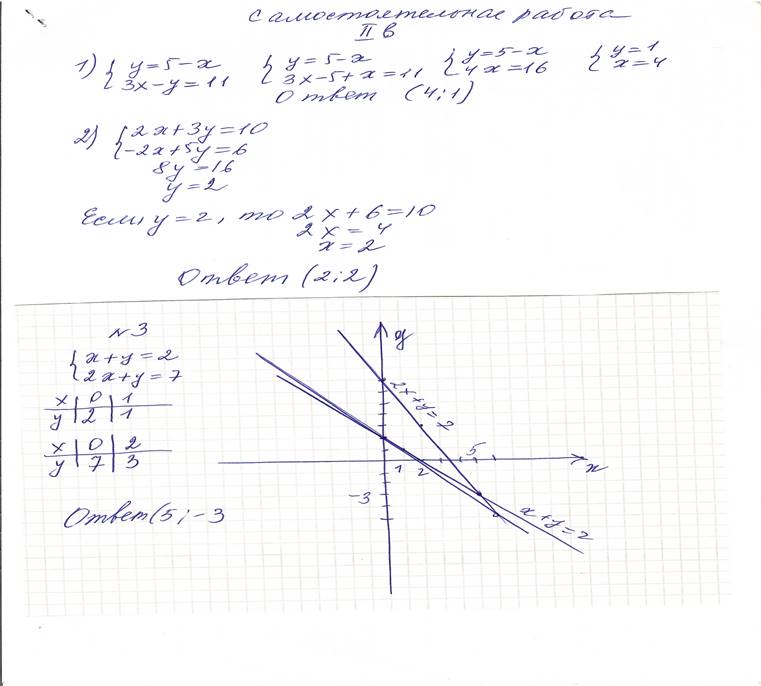 Самостоятельная работа
II в
1) { y=5-x { y=5-x { y=5-x { y=1
3x-y=11 3x-5+x=11 4x=16 x=4
Ответ (4;1)
2) { 2x+3y=10
-2x+5y=6
8y=16
y=2
Если y=2, то 2x+6=10
2x=4
x=2
Ответ (2;2)
№3
{ x+y=2
2x+y=7
x | 0 | 1
y | 2 | 1
x | 0 | 2
y | 7 | 3
Ответ (5;-3
y
2x+y=7
5
1 2 x
-3
x+y=2